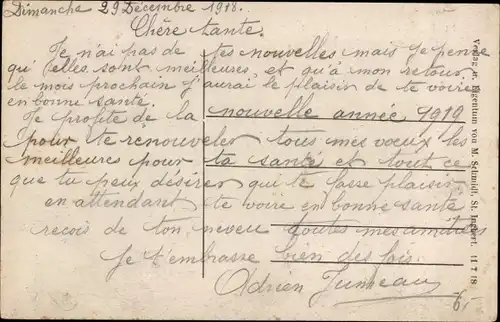 Dimanche 29 Décembre 1918.
Chère tante.
Je n'ai pas de tes nouvelles mais je pense
qu'elles sont meilleures et qu'à mon retour
le mois prochain j'aurai le plaisir de te voire
en bonne santé.
Je profite de la nouvelle année, 1919
pour te rénouveler tous mes voeux les
meilleures pour ta santé et tout ce
que tu peux désirer qui te fasse plaisir,
en attendant te voire en bonne santé
recois de ton neveu toutes mes amitiés
Je t'embrasse bien des fois.
Adrien Jumeau
6
Verlag u. Eigentum von M. Schmidt, St. Ingbert. 11 7 18